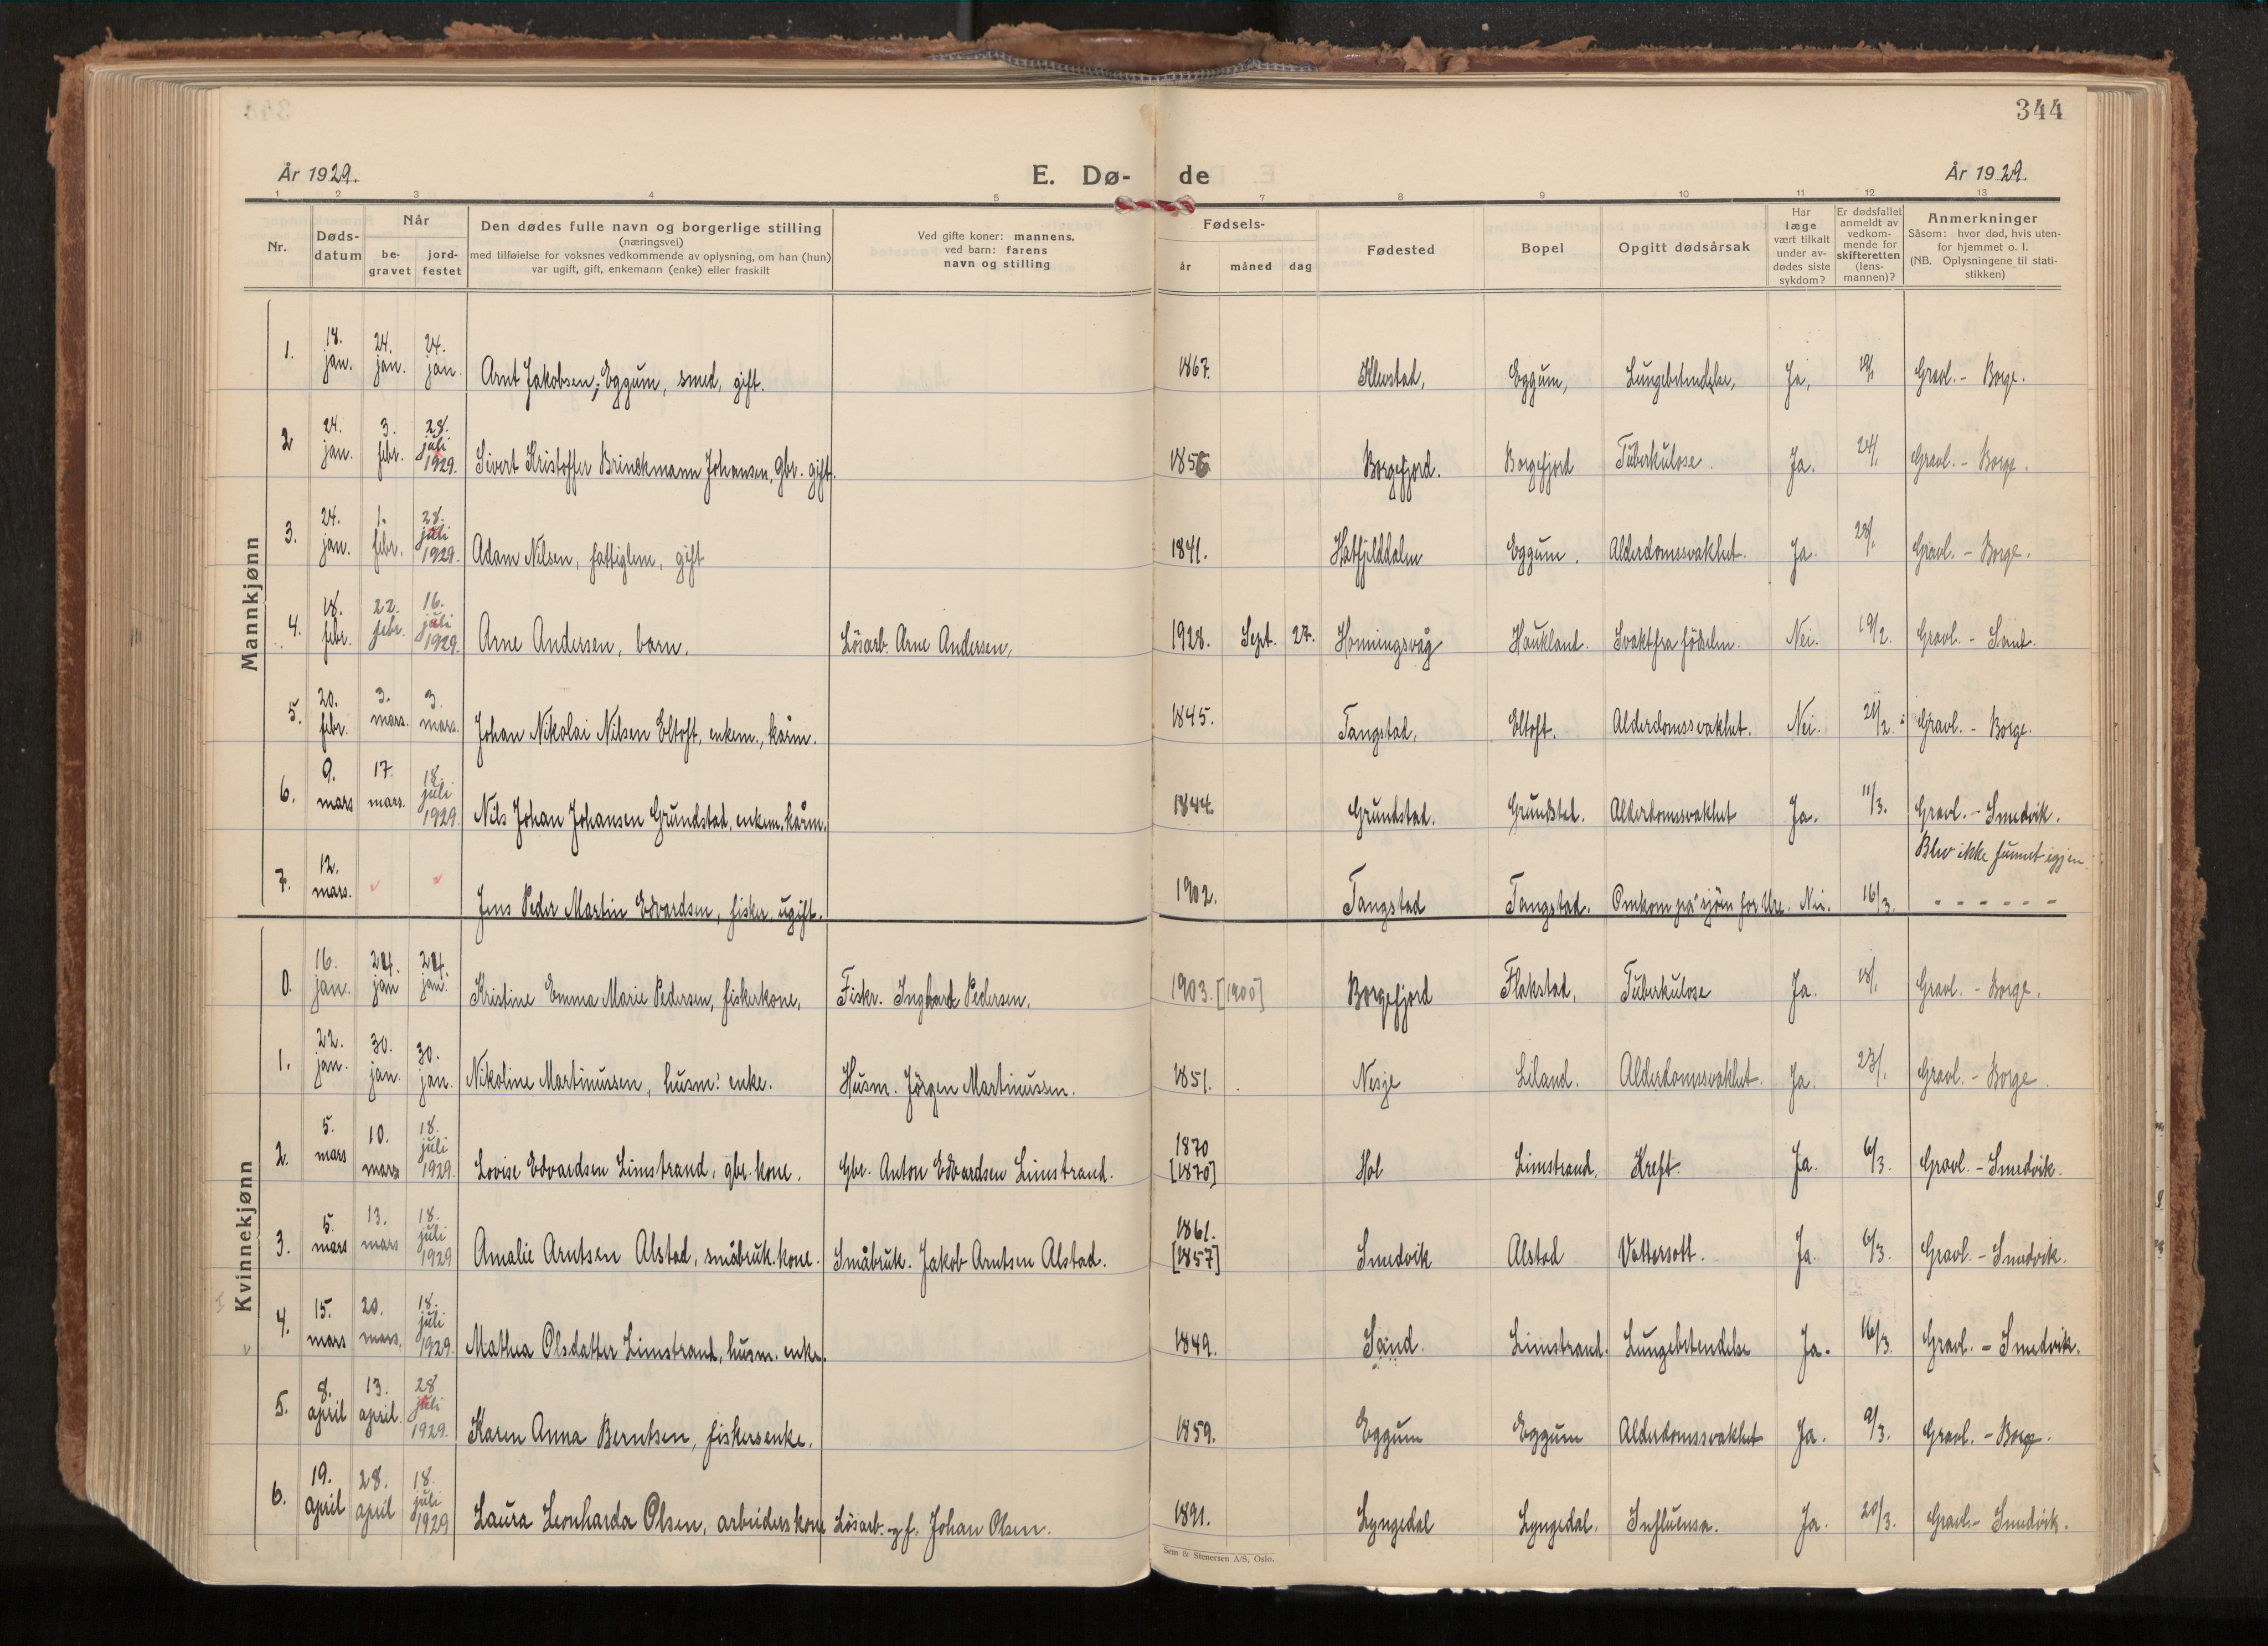 344
År 1929.
E. Dø- de
År 1929.
1 2 3 4 5 7 8 9 10 11 12 13
Nr.
Døds-
datum
Når
be-
gravet
jord-
festet
Den dødes fulle navn og borgerlige stilling
(næringsvei)
med tilføielse for voksnes vedkommende av oplysning, om han (hun)
var ugift, gift, enkemann (enke) eller fraskilt
Ved gifte koner: mannens,
ved barn: farens
navn og stilling
Fødsels-
år måned dag
Fødested
Bopel
Opgitt dødsårsak
Har
læge
vært tilkalt
under av-
dødes siste
sykdom?
Er dødsfallet
anmeldt av
vedkom-
mende for
skifteretten
(lens-
mannen)?
Anmerkninger
Såsom: hvor død, hvis uten-
for hjemmet o. l.
(NB. Oplysningene til stati-
stikken)
Mannkjønn
1. 18. jan. 24. jan. 24. jan. Arnt Jakobsen, Eggum, smed, gift. 1867. Klevstad, Eggum, Lungebetendelse, Ja, 19/1 Gravl. - Borge.
2 24. jan. 3. febr. 28. juli 1929. Sivert Kristoffer Brinckmann Johansen, Gbr. gift. 1856 Borgefjord. Borgefjord Tuberkulose. Ja. 24/1. Gravl. - Borge.
3. 24. jan. 1. febr. 28. juli 1929. Adam Nilsen, fattiglem, gift 1841. Hatfjelddalen Eggum. Alderdomssvakhet. Ja. 28/1. Gravl. - Borge.
4. 18. febr. 22. febr. 16. juli 1929. Arne Andersen, barn. Lösarb. Arne Andersen, 1928. Sept. 27. Honningsvåg Haukland. Svakt fra födselen. Nei. 19/2. Gravl. - Sand.
5. 20. febr. 3. mars. 3. mars. Johan Nikolai Nilsen Eltoft, enkem., kårm. 1845. Tangstad, Eltoft. Alderdomssvakhet. Nei. 21/2. Gravl. - Borge.
6. 9. mars 17. mars. 18. juli 1929. Nils Johan Johansen Grundstad, enkem. kårm. 1844. Grundstad. Grundstad. Alderdomssvakhet Ja. 11/3. Gravl. - Smedvik.
7. 12. mars. Jens Peder Martin Edvardsen, fisker, ugift. 1902. Tangstad Tangstad. Omkom på sjøen for Ure. Nei. 16/3. Blev ikke funnet igjen - - - - - -
Kvinnekjønn
0. 16. jan. 24. jan 24. jan. Kristine Emma Marie Pedersen, fiskerkone, Fiskr. Ingvard Pedersen, 1903. [1900] Borgefjord Flakstad, Tuberkulose Ja. 18/1. Gravl. - Borge.
1. 22. jan. 30. jan. 30. jan. Nikoline Martinussen, husm: enke. Husm. Jörgen Martinussen. 1851. Nesje Liland. Alderdomssvakhet. Ja. 23/1. Gravl. - Borge.
2. 5. mars 10. mars 18. juli 1929. Lovise Edvardsen Limstrand, gbr. kone. Gbr. Anton Edvardsen Limstrand. 1870 [1870] Hol Limstrand, Kreft. Ja. 6/3. Gravl. - Smedvik.
3. 5. mars 13. mars 18. juli 1929 Amalie Arntsen Alstad, småbruk. kone. Småbruk. Jakob Arntsen Alstad. 1861. [1857] Smedvik Alstad Vattersott. Ja. 6/3. Gravl. - Smedvik.
4. 15. mars 20. mars. 18. juli 1929. Mathea Olsdatter Limstrand, husm. enke. 1849. Sand. Limstrand. Lungebetendelse Ja. 16/3. Gravl. - Smedvik.
5. 8. april 13. april. 28 juli 1929. Karen Anna Berntsen, fiskersenke. 1859. Eggum Eggum Alderdomssvakhet Ja. 9/3. Gravl. - Borge.
6. 19. april 28. april 18. juli 1929 Laura Leonharda Olsen, arbeiderskone Lösarb. og f. Johan Olsen. 1891. Lyngedal Lyngedal. Influensa. Ja. 20/3. Gravl. - Smedvik.
Sem & Stenersen A/S, Oslo.